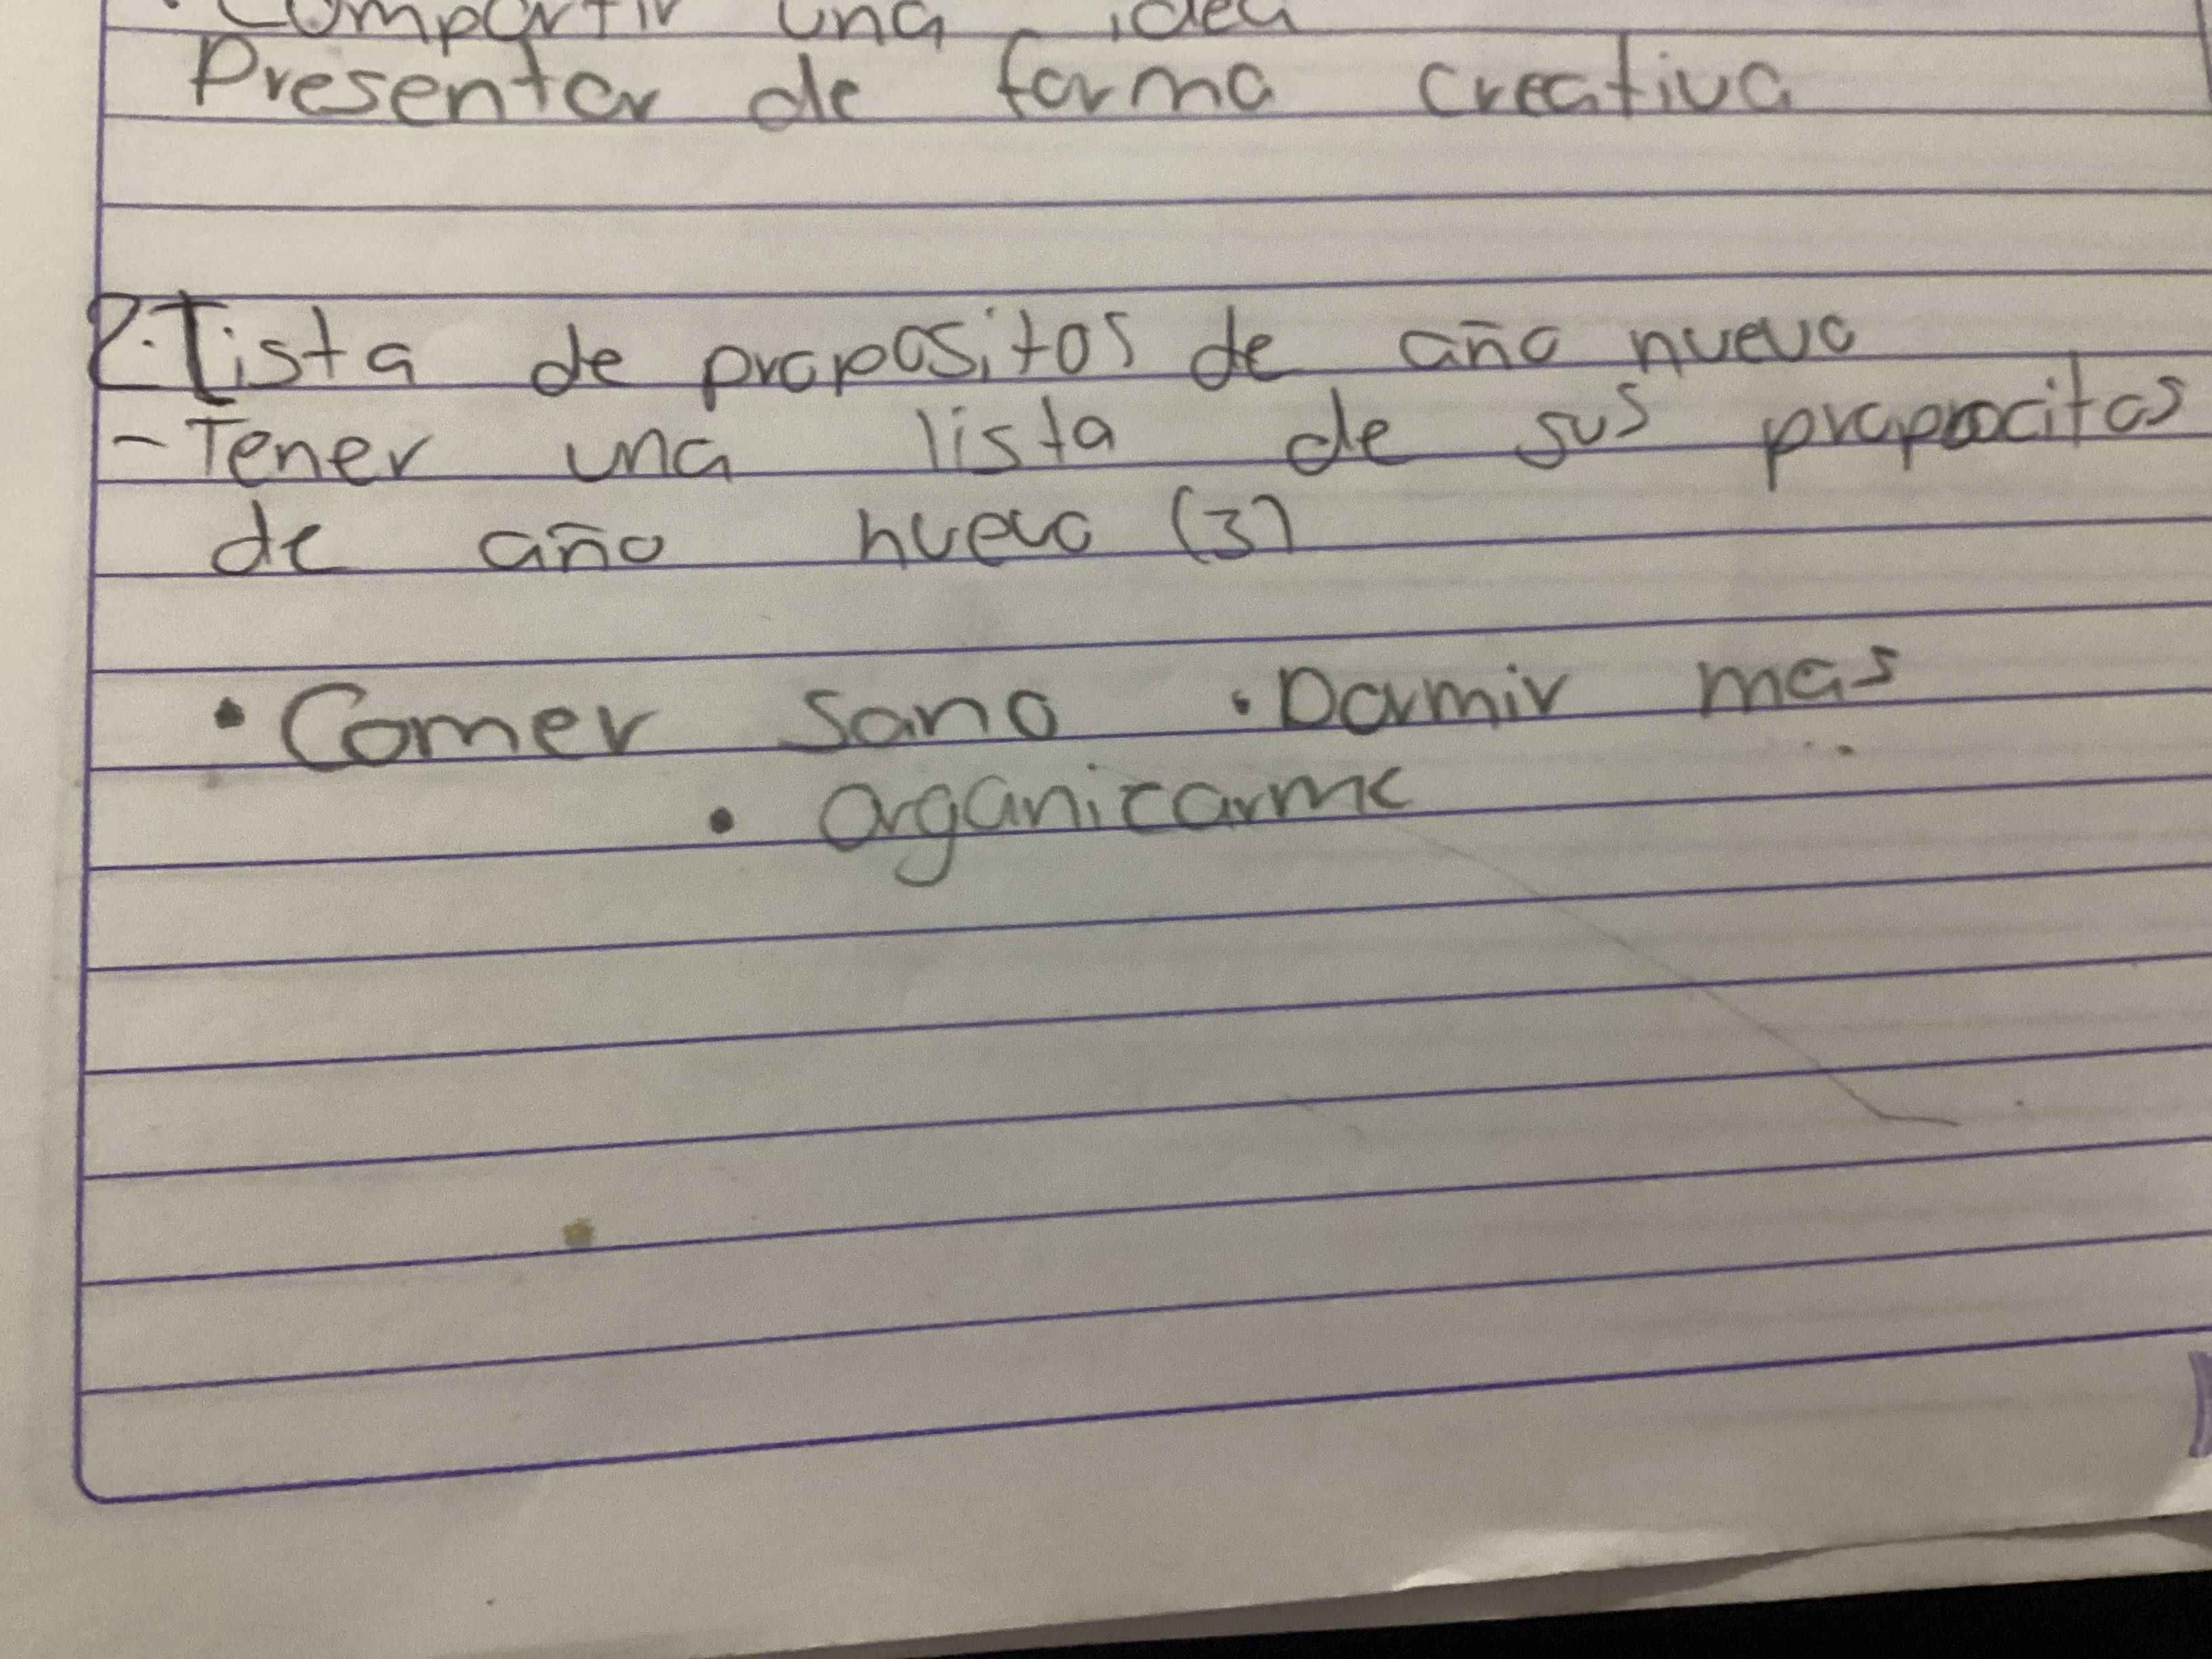 · Compartir una idea
Presentar de forma creativa
2. Lista de propositos de año nuevo
- Tener una lista de sus propocitos
de año nuevo (3)
• Comer sano • Dormir mas
• Organizarme